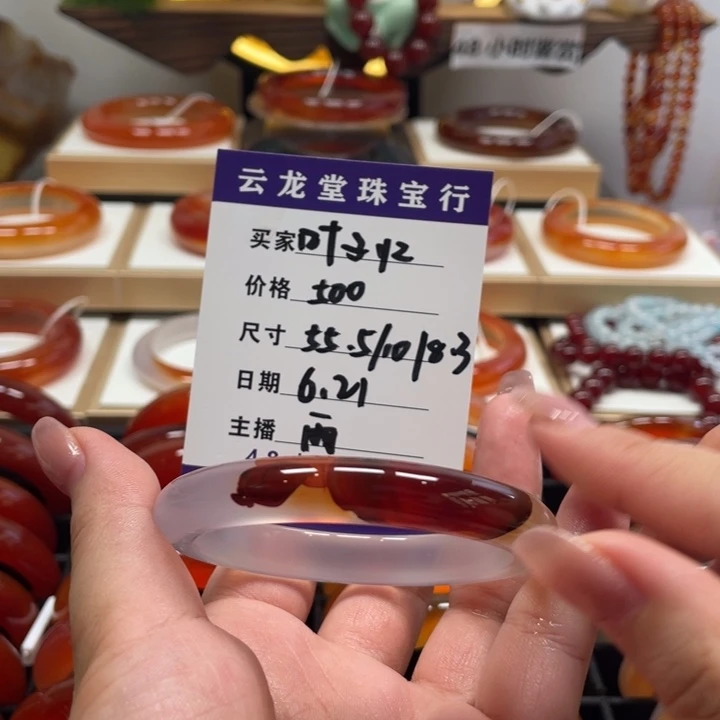 48小时鉴赏
云龙堂珠宝行
买家 叶子42
价格 500
尺寸 55.5/10/8.3
日期 6.21
主播 雨